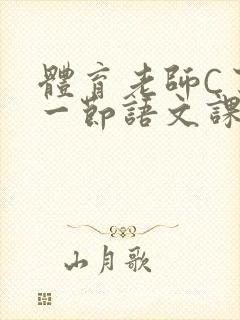 體育老師C
一節語文課
山月歌